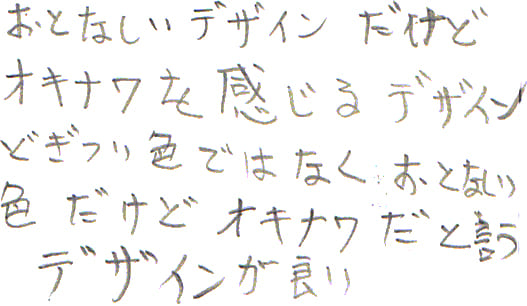 おとなしいデザインだけど
オキナワを感じるデザイン
どぎつい色ではなくおとない
色だけどオキナワだと言う
デザインが良い